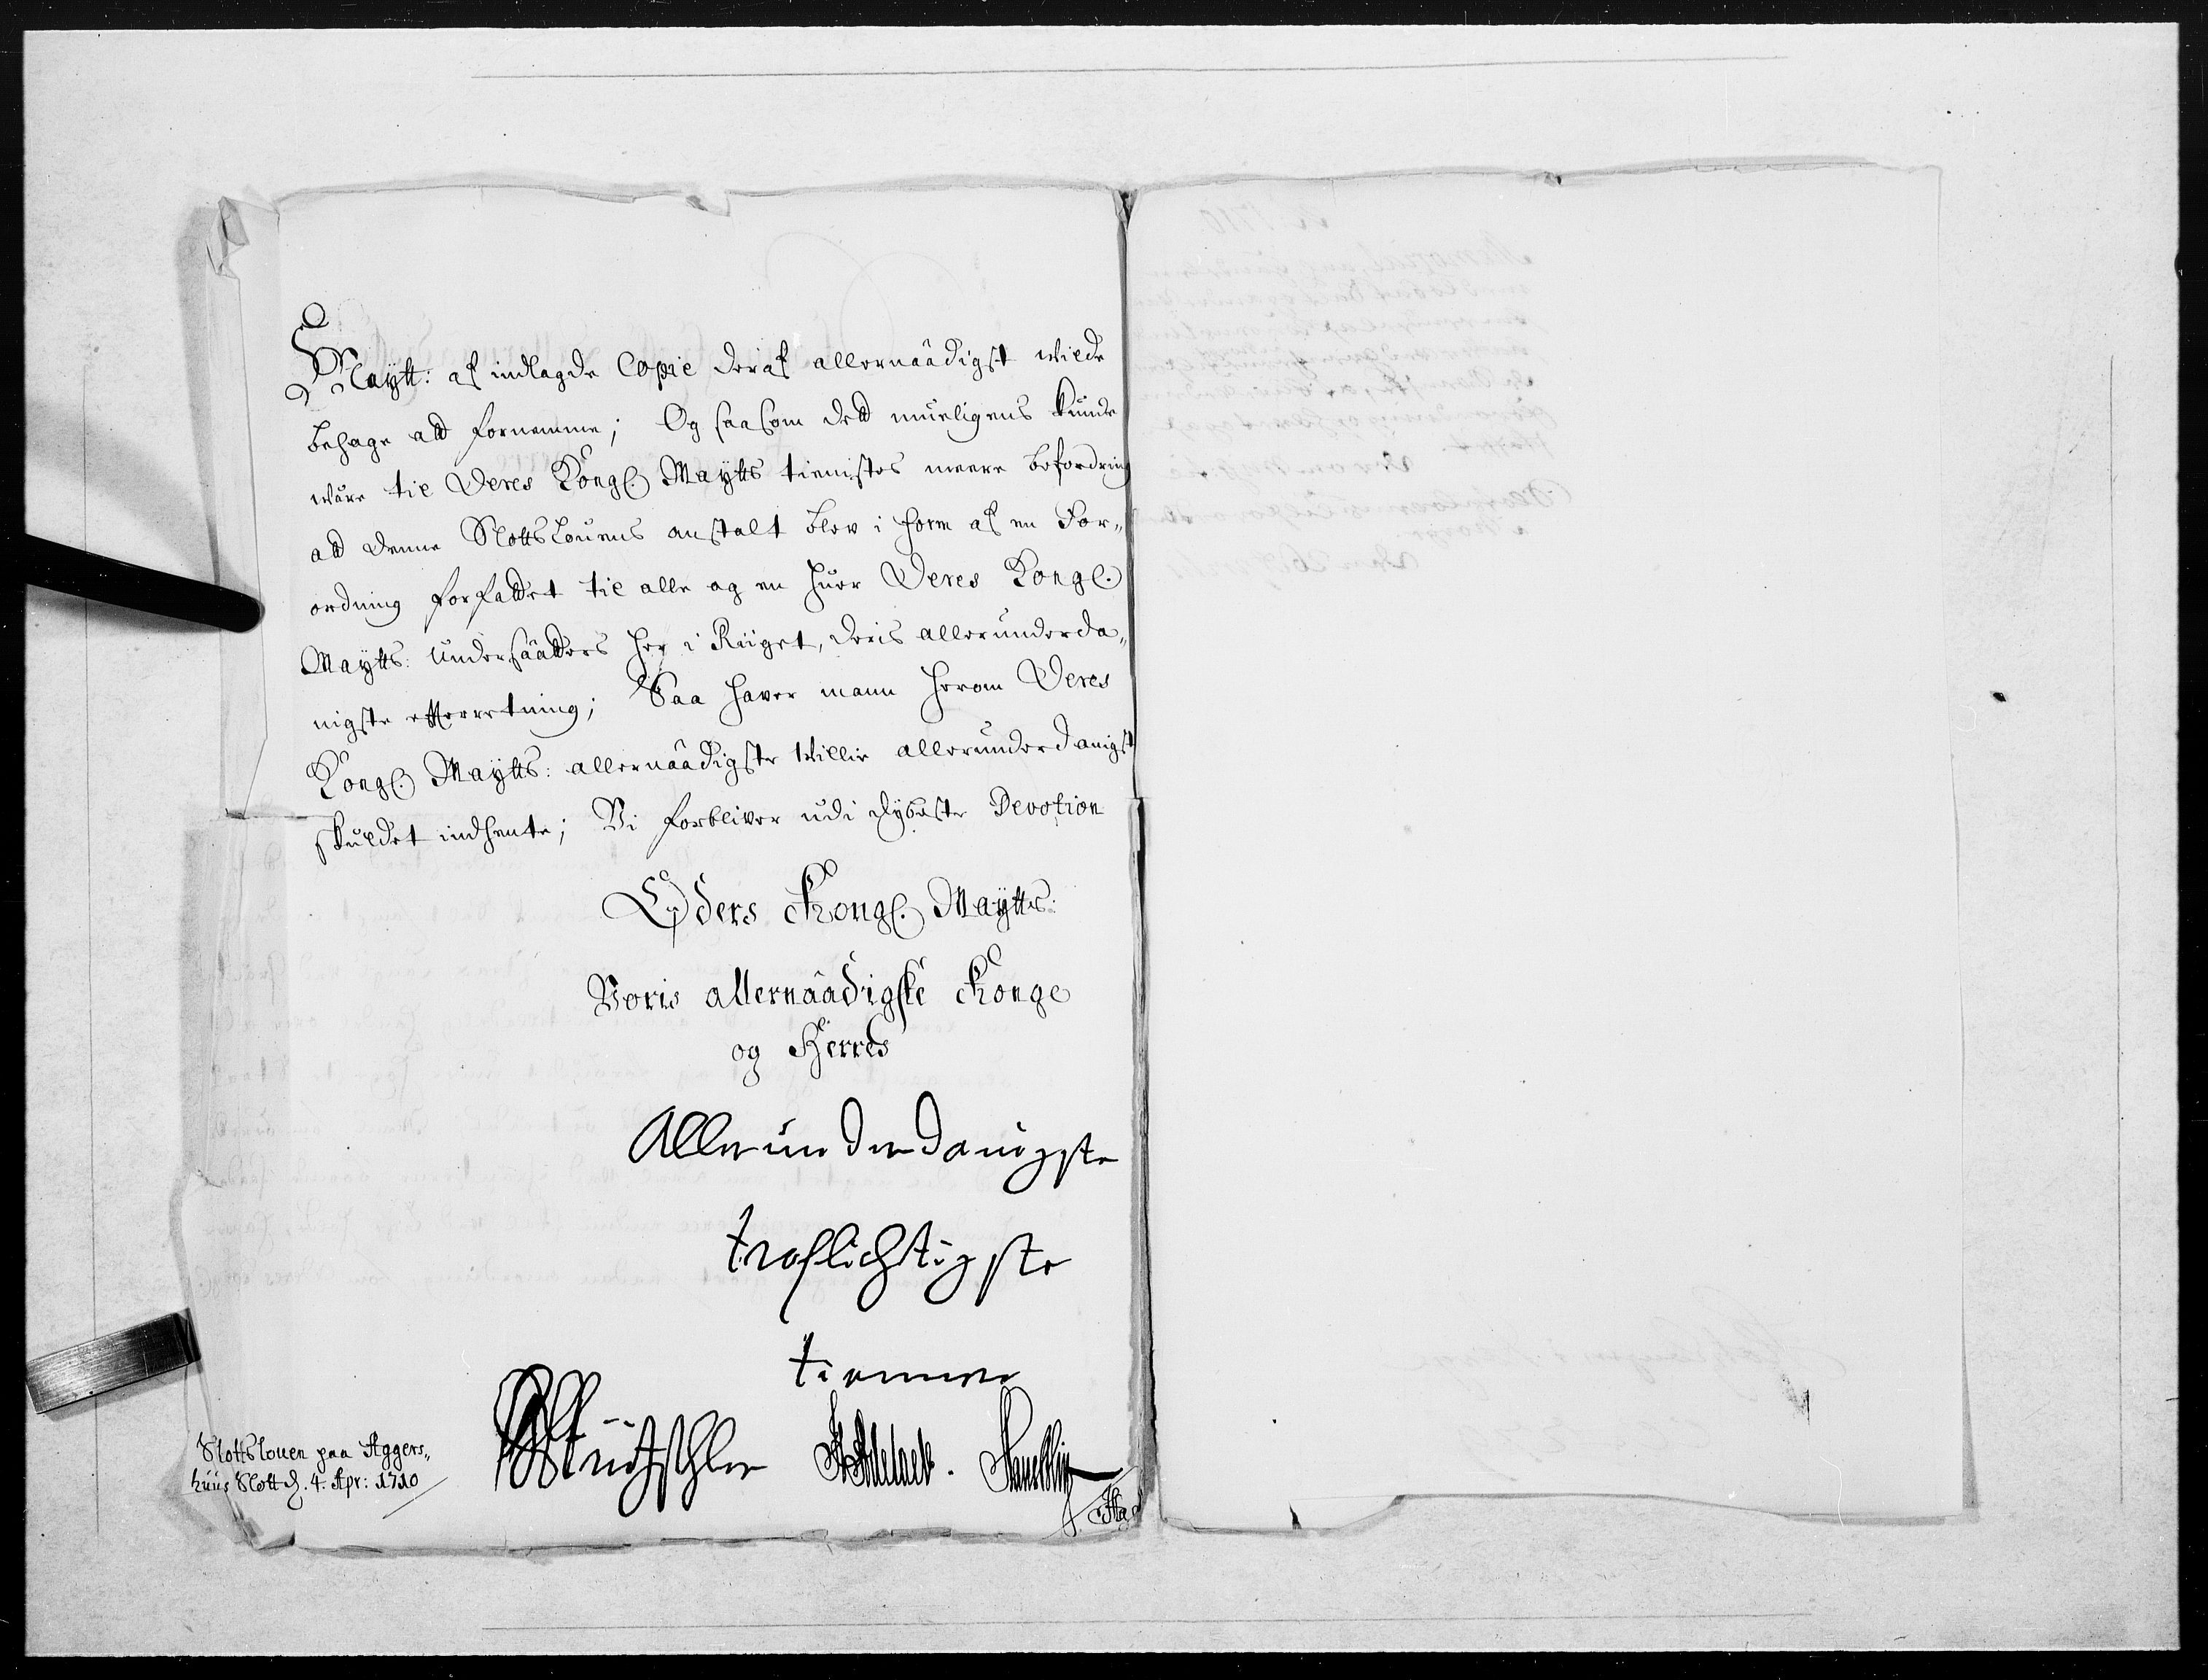 Maytt: af indlagde Copie deraf allernaadigst wilde
behage att fornemme; Og saasom dett mueligens kunde
wäre til Deres Kongl. Maytts tienistes meere befordring
att denne SlottsLouens anstalt blev i form af en For„
ordning forfattet til alle og en huer Deres Kongl.
Maytts: Undersaatters her i Riiget, deris allerunderda„
nigste efterretning; Saa haver mann herom Deres
Kongl. Maytts: allernaadigste Willie allerunderdanigst
skuldet indhente; Vi forbliver udi dybeste Devotion
Eders Kongl. Maytts:
Voris allernaadigste Konge
og Herres
Allerunderdanigste
tropflichtigste
tienere
Slottslouen paa Aggers„
huus Slott d. 4. Apr: 1710